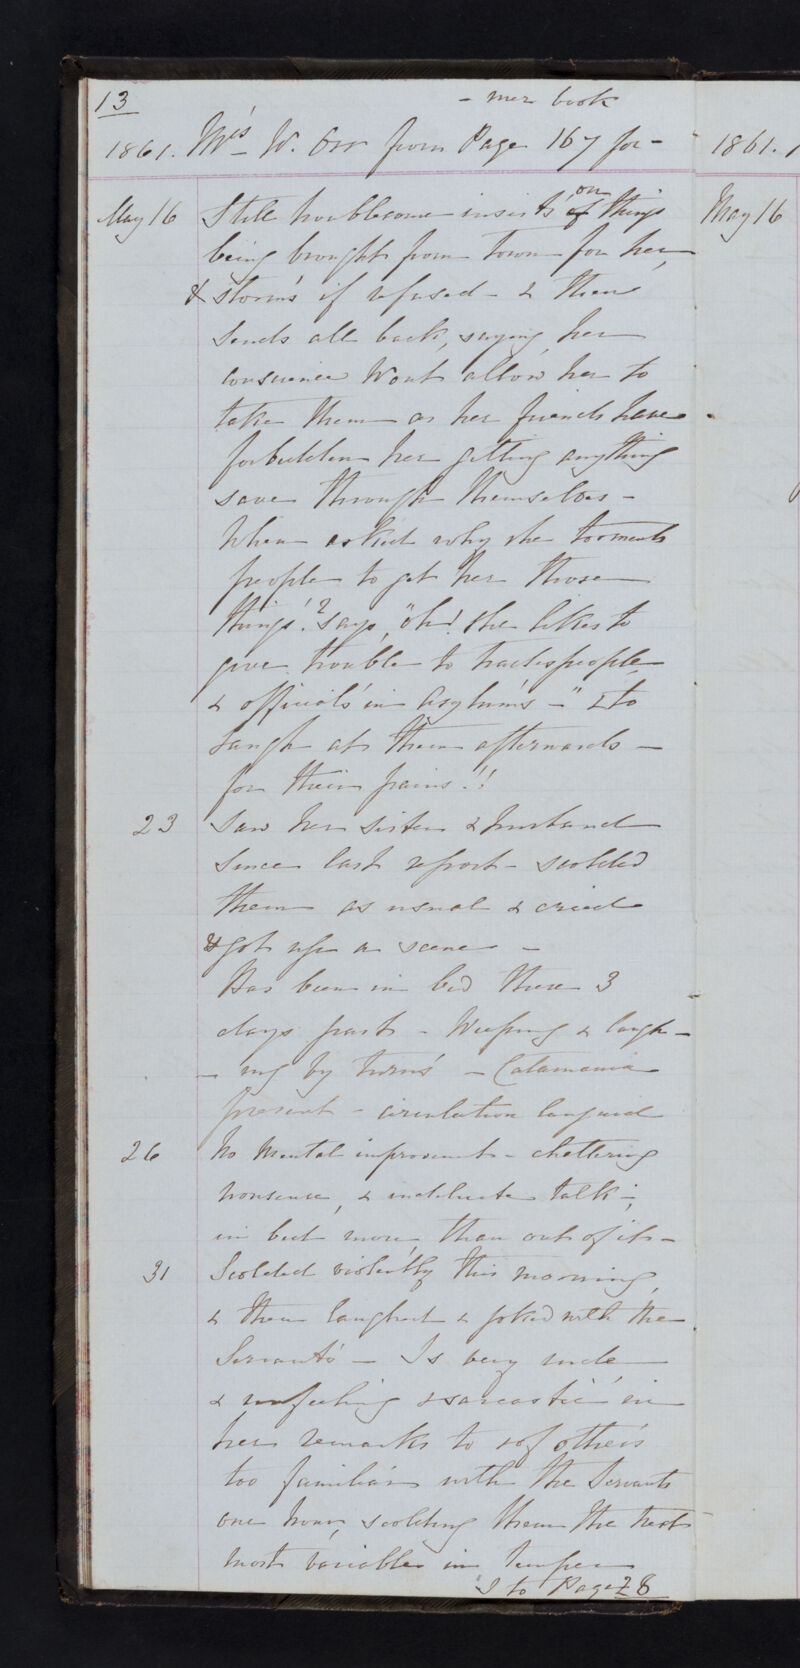 13
- mer book
1861. Mrs W. Orr from Page 167 for-
1861.
May 16 Still troublesome insists on of things
May 16
being brought from Town for her,
& storms if refused - & then
sends all back, saying, her
conscience Wont allow her to
take them as her friends have
forbidden her getting anything
save through themselves -
When asked why she torments
people to get her those
things!? says, "oh! she likes to
give trouble to tradespeople
& officials in Asylums -" & to
laugh at them afterwards -
for their pains!!
23 Saw her sister & husband
since last report - scolded
them as usual & cried
& got up a scene -
Has been in bed these 3
days past - Weeping & laugh-
- ing by turns - Catamania
present - circulation languid
26 No Mental improvement - chattering
nonsense, & indelicate talk -,
in bed more, than out of it -
31 Scolded violently this morning,
& then laughed & joked with the
Servants - Is very rude
& unfeeling & sarcastic in
her remarks to & of others
too familiar with the Servants
one hour, scolding them the next
most variable in temper
to Page 28